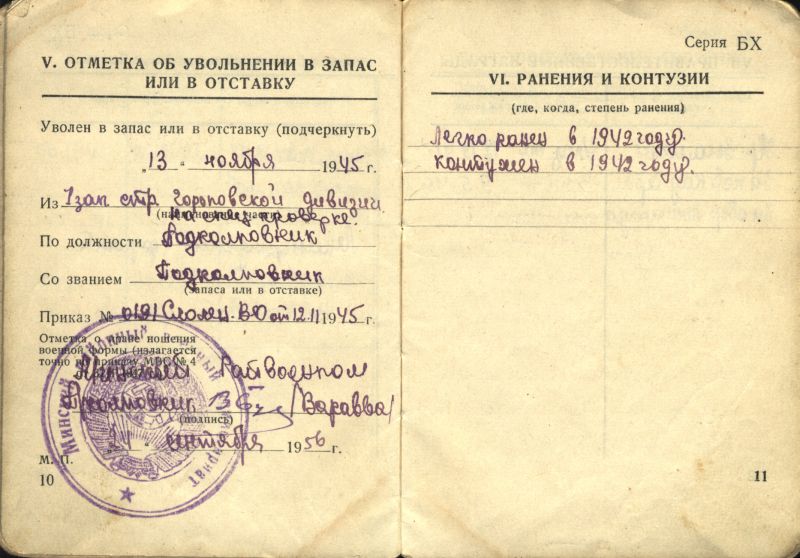 V. ОТМЕТКА ОБ УВОЛЬНЕНИИ В ЗАПАС
ИЛИ В ОТСТАВКУ
Уволен в запас или в отставку (подчеркнуть)
„13“ ноября 1945 г.
Из 1 зап стр. Горьковской дивизии
(наименование части)
на спец. проверке.
По должности Подполковник
Со званием Подполковник
(запаса или в отставке)
Приказ № 0191 ВО от 12.11 1945 г.
Отметка о праве ношения
военной формы (излагается
точно по приказу МВС № 4
Райвоенком
Подполковник /Варавва/
(подпись)
сентября 1956 г.
М. П.
Минский
10
Серия БХ
VI. РАНЕНИЯ И КОНТУЗИИ
(где, когда, степень ранения)
Легко ранен в 1942 году.
контужен в 1942 году.
11